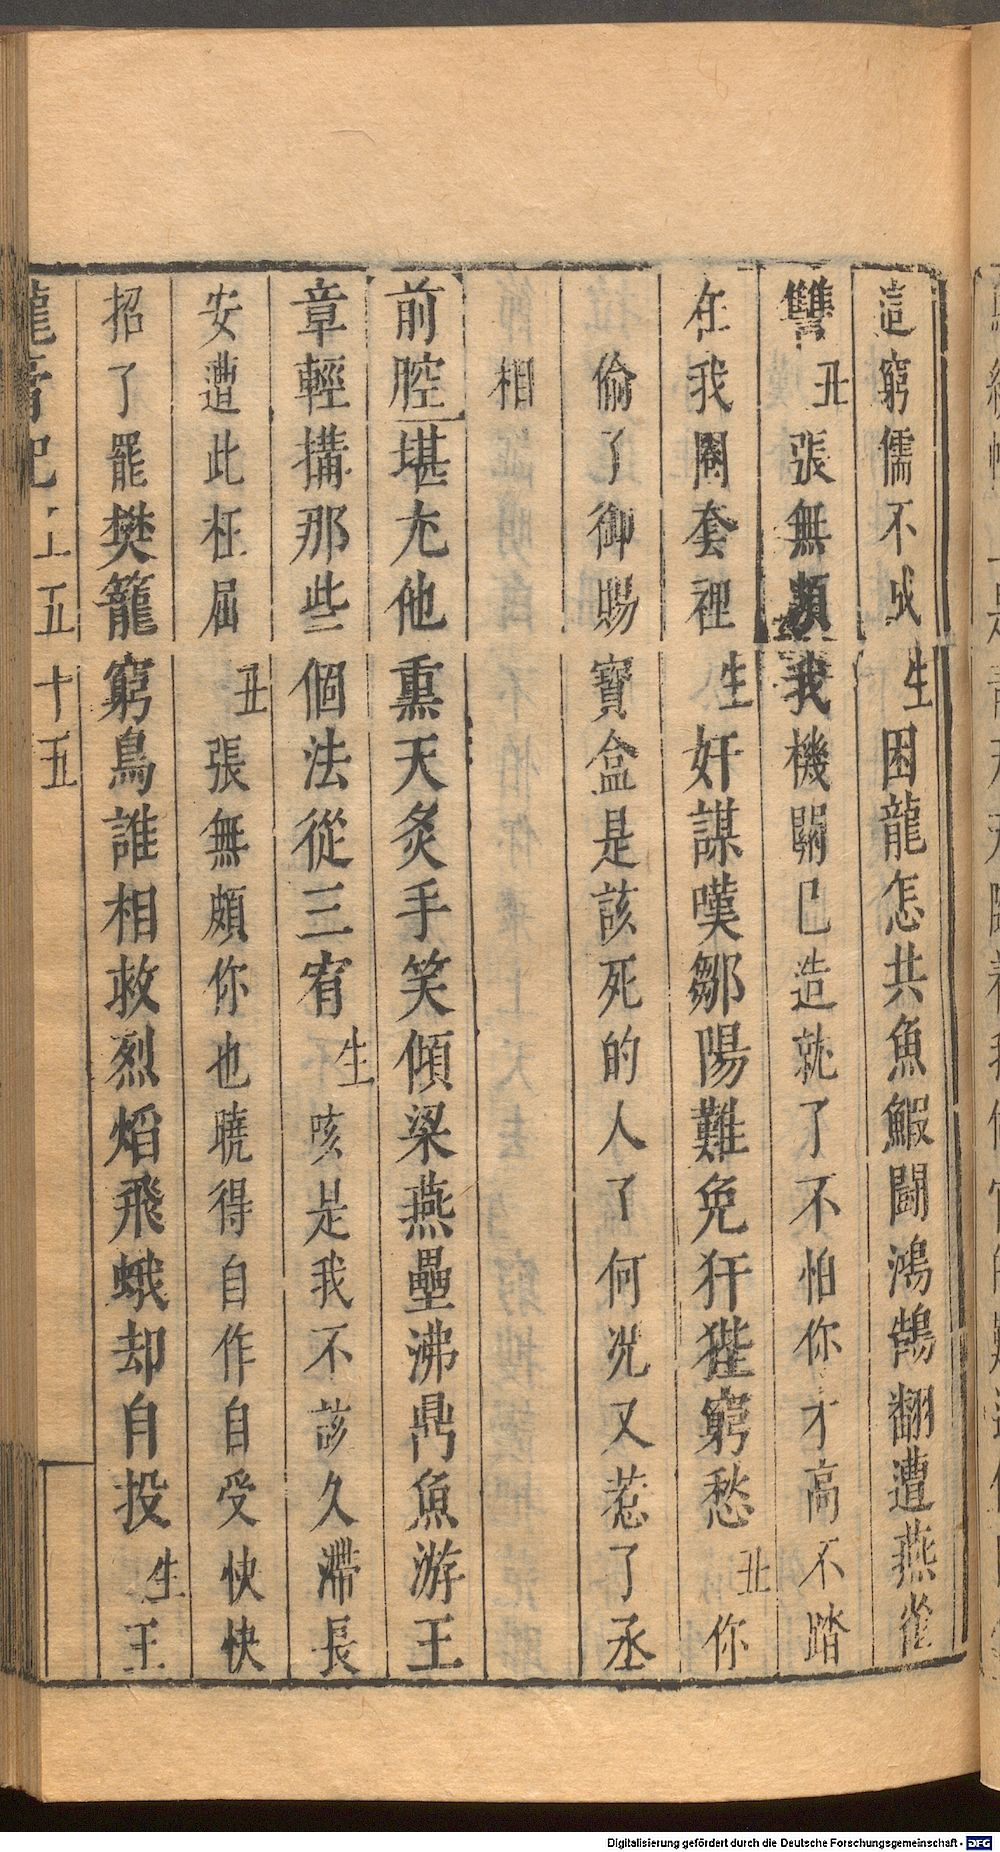 這窮儒不成生困龍怎共魚鰕鬪鴻鵠翻遭燕雀
讐丑張無頗我機關已造就了不怕你才高不踏
在我圈套裡生奸謀嘆鄒陽難免犴狴窮愁丑你
偷了御賜寶盒是該死的人了何况又惹了丞
相
前腔堪尤他熏天炙手笑傾梁燕壘沸鼎魚游王
章輕搆那些個法從三宥生咳是我不該久滯長
安遭此枉屈丑張無頗你也曉得自作自受快快
招了罷樊籠窮鳥誰相救烈熖飛蛾却自投生王
龍膏記 五十五
Digitalisierung gefördert durch die Deutsche Forschungsgemeinschaft - DFG